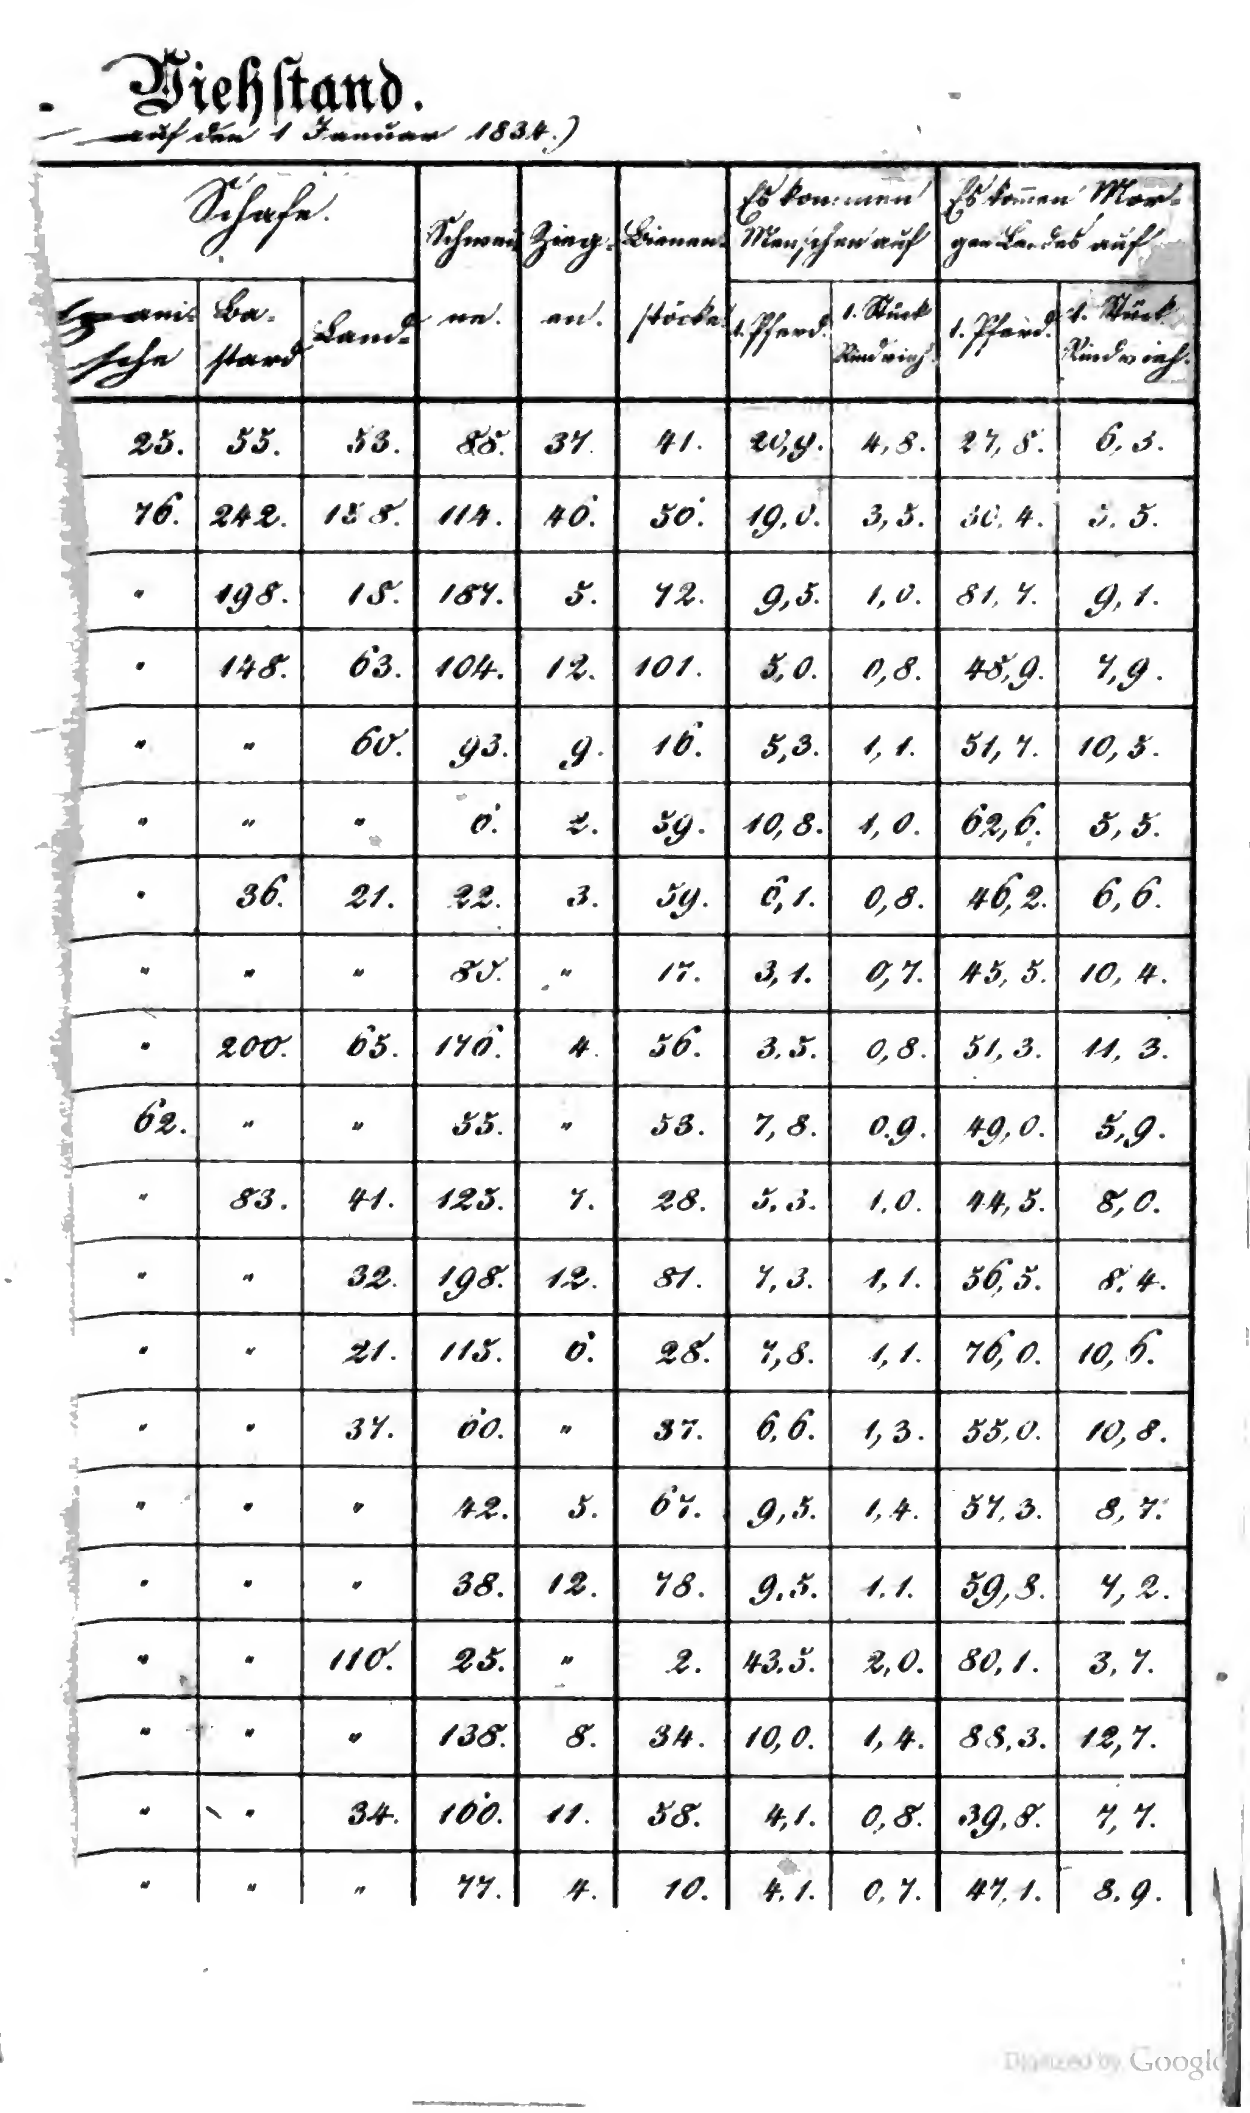 Viehstand.
auf den 1 Januar 1834.)
Schafe. Schwei- Zieg- Bienen- Es kommen Es kom̄en Mor-
Menschen auf gen Landes auf
spani- Ba- Land- ne. en. stöcke 1. Pferd. 1. Stück 1. Pferd. 1. Stück
sche stard Rindvieh. Rindvieh.
25. 55. 53. 88. 37. 41. 20,9. 4,8. 27,8. 6,3.
76. 242. 158. 114. 40. 50. 19,0. 3,5. 30,4. 5,5.
" 198. 18. 187. 5. 72. 9,5. 1,0. 81,7. 9,1.
" 148. 63. 104. 12. 101. 5,0. 0,8. 48,9. 7,9.
" " 60. 93. 9. 16. 5,3. 1,1. 51,7. 10,5.
" " " 6. 2. 59. 10,8. 1,0. 62,6. 5,5.
" 36. 21. 22. 3. 59. 6,1. 0,8. 46,2. 6,6.
" " " 80. " 17. 3,1. 0,7. 45,5. 10,4.
" 200. 65. 176. 4. 56. 3,5. 0,8. 51,3. 11,3.
62. " " 55. " 53. 7,8. 0,9. 49,0. 5,9.
" 83. 41. 125. 7. 28. 5,3. 1,0. 44,5. 8,0.
" " 32. 198. 12. 81. 7,3. 1,1. 56,5. 8,4.
" " 21. 115. 6. 28. 7,8. 1,1. 76,0. 10,6.
" " 37. 60. " 37. 6,6. 1,3. 55,0. 10,8.
" " " 42. 5. 67. 9,5. 1,4. 57,3. 8,7.
" " " 38. 12. 78. 9,5. 1,1. 59,8. 7,2.
" " 110. 25. " 2. 43,5. 2,0. 80,1. 3,7.
" " " 138. 8. 34. 10,0. 1,4. 88,3. 12,7.
" " 34. 160. 11. 58. 4,1. 0,8. 39,8. 7,7.
" " " 77. 4. 10. 4,1. 0,7. 47,1. 8,9.
Digitized by Google